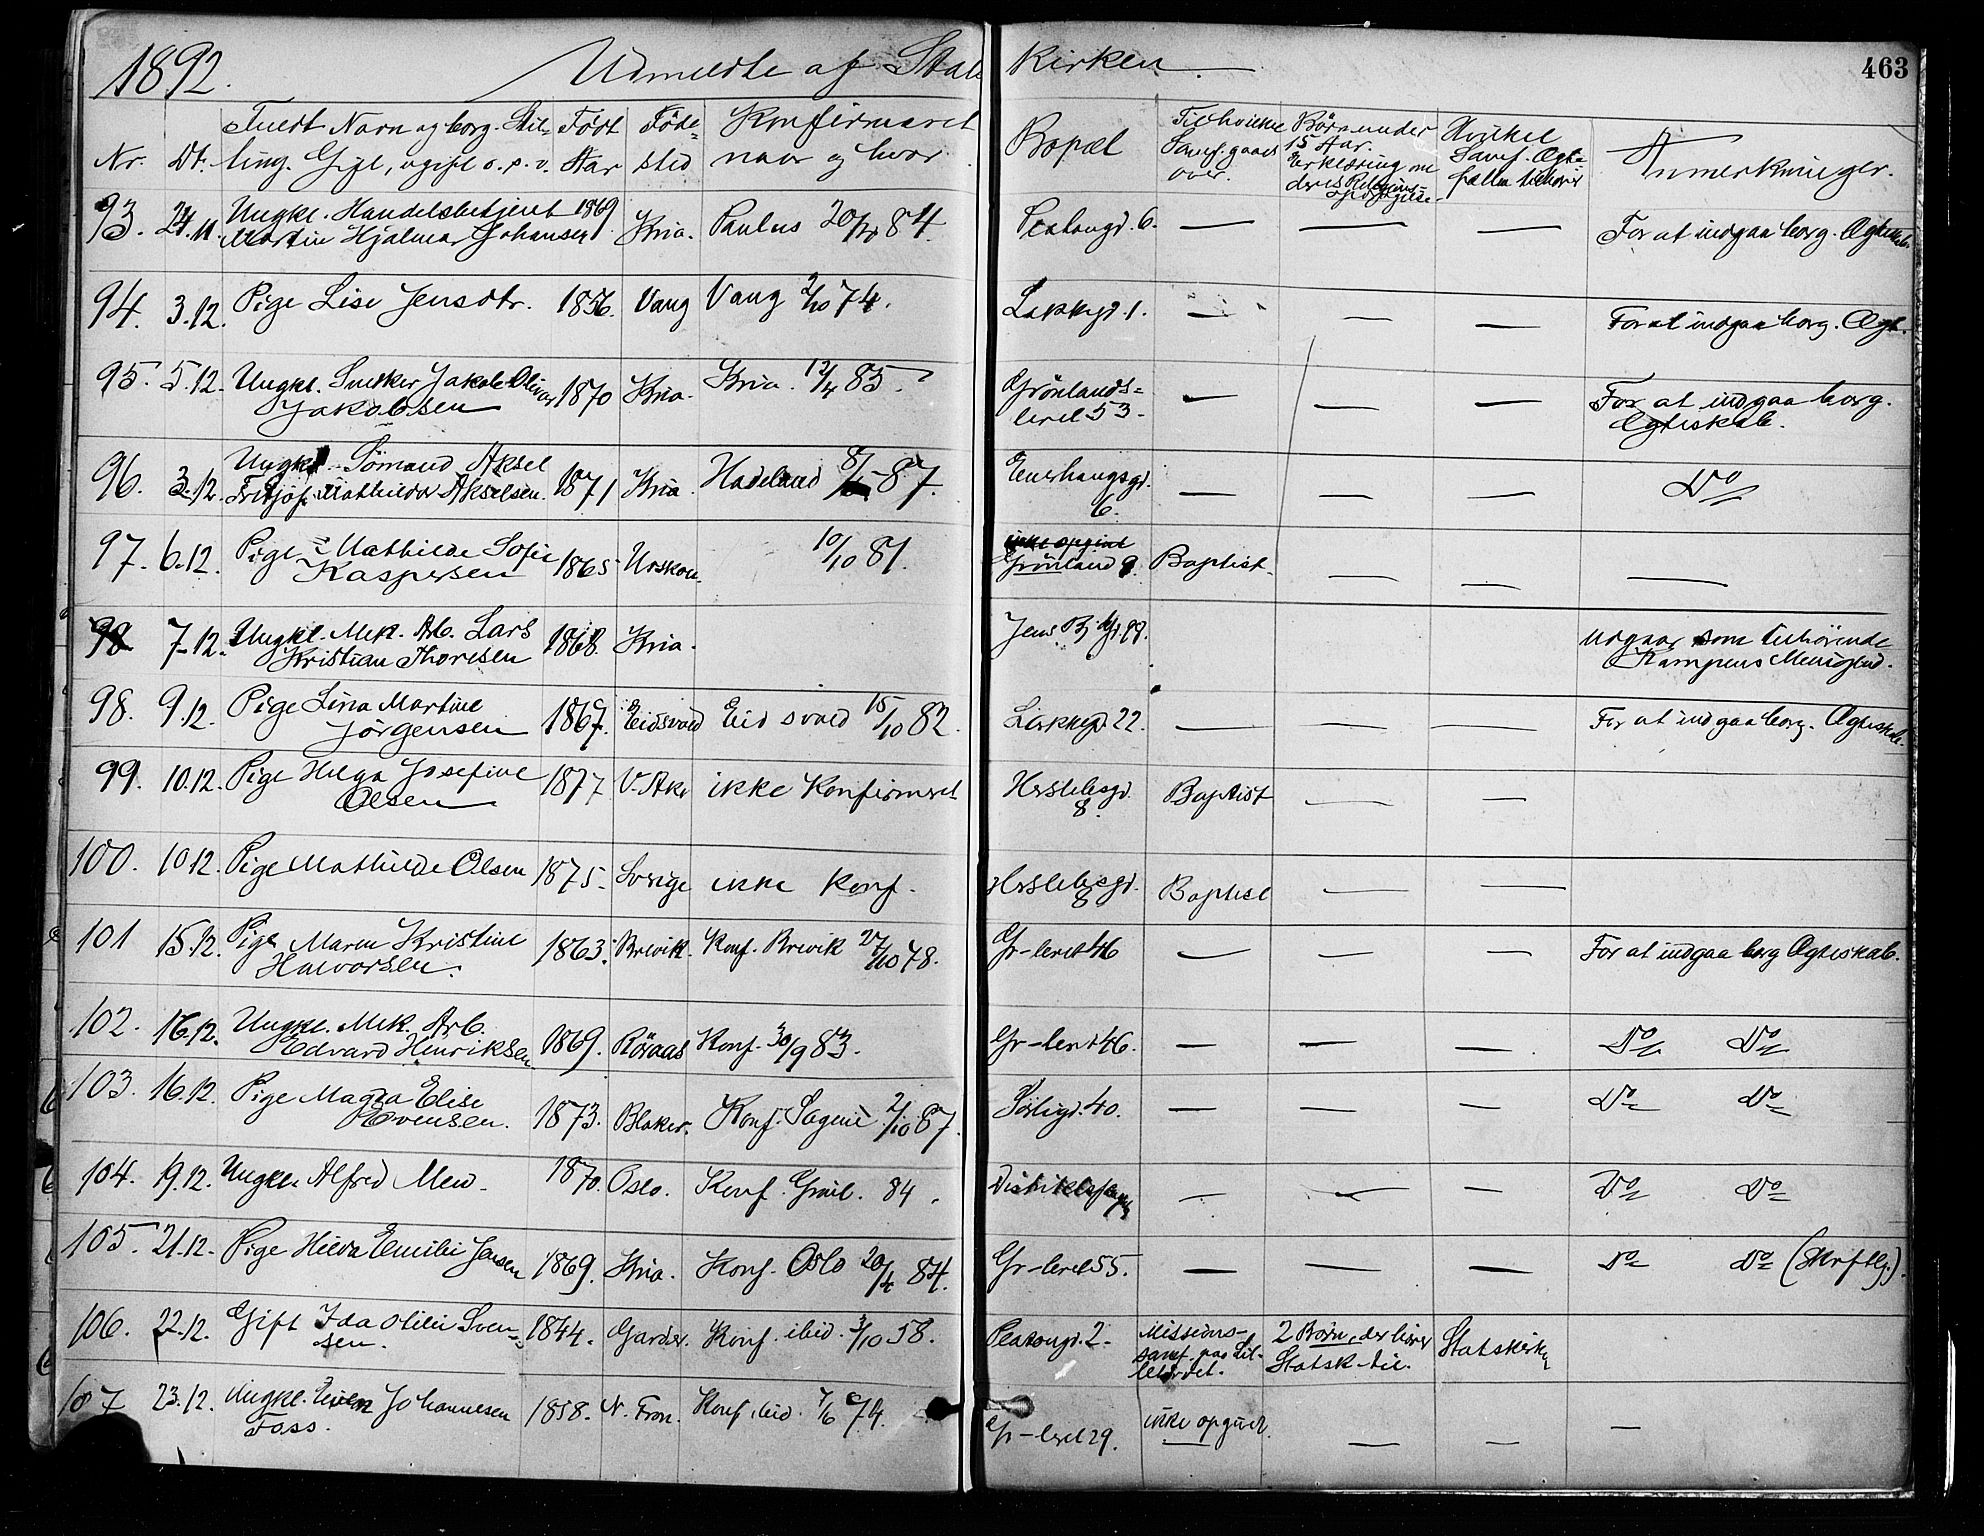 1892. Udmeldte af Stats Kirken. 463
Nr. Dt. Fuldt Navn og borg. Stil- Født Føde- Konfirmeret Bopæl Til hvilken Børn under Hvilket Anmerkninger.
ling. Gift, ugift o.s.v. Aar sted naar og hvor Samf. gaaes 15 Aar. Samf. Ægte-
over. Erklæring om fællen tilhører
deres Religions-
93. 24.11 Ungkl. Handelsbetjent 1869 Kria. Paulus 20/4 84. Platougd. 6. — — — For at indgaa borg. Ægteskab.
Martin Hjalmar Johansen
94. 3.12. Pige Lise Jensdtr. 1856. Vang Vang 2/10 74. Lakkegd. 1. — — — For at indgaa borg. Ægt.
95. 5.12. Ungkl. Snekker Jakob Olivar 1870 Kria. Kria. 12/4 85. Grønlands- — — — For at indgaa borg.
Jakobsen leret 53. Ægteskab.
96. 3.12. Ungkl. Sømand Aksel 1871 Kria. Hadeland 87. Enerhaugsgd. — — — Do
Fritjof Mathilda Akselsen. 6.
97. 6.12. Pige Mathilde Sofie 1865 Urskou. 10/10 81. ikke opgivet Baptist. — — —
Kaspersen Grønland 9.
98 7.12. Ungkl. Mek. Arb. Lars 1868. Kria. Jens Bj. gd 99. Udgaar som tilhørende
Kristian Thoresen Kampens Menighed.
98. 9.12. Pige Lina Martine 1867. Eidsvold Eidsvold 15/10 82. Lakkegd 22. — — — For at indgaa borg. Ægteskab.
Jørgensen
99. 10.12. Pige Helga Josefine 1877 V. Aker ikke Konfirmeret Herslebsgd. Baptist — —
Olsen 8.
100. 10.12. Pige Mathilde Olsen 1875. Sverige ikke Konf. Herslebsgd. Baptist — —
8
101 15.12. Pige Maren Kristine 1863. Brevik. Konf. Brevik 27/10 78. Gr-leret 46 — — — For at indgaa borg Ægteskab.
Halvorsen.
102. 16.12. Ungkl. Mek. Arb. 1869. Röraas Konf. 30/9 83. Gr-leret 46. — — — Do Do
Edvard Henriksen
103. 16.12. Pige Magda Elise 1873. Blaker. Konf. Sagene 2/10 87. Sörligd. 40. — — — Do Do
Evensen.
104. 19.12. Ungkl. Alfred Meu. 1870. Oslo. Konf. Grønl. 84. — — — Do Do
105. 21.12. Pige Hilda Emilie Jensen 1869. Kria. Konf. Oslo 20/4 84. Gr-leret 55. — — — Do Do (skrftlg.).
106. 22.12. Gift Ida Olilie Sven- 1844. Garder. Konf. ibid. 3/10 58. Platougd. 2. Missions- 2 Børn, der hører Statskirken
sen. samf. paa Lil- Statsk. til.
letordet.
107 23.12. Ungkl. Even Johannesen 1858. N. Fron. Konf. ibid. 7/6 74. Gr-leret 29. ikke opgivet. — — —
Foss.